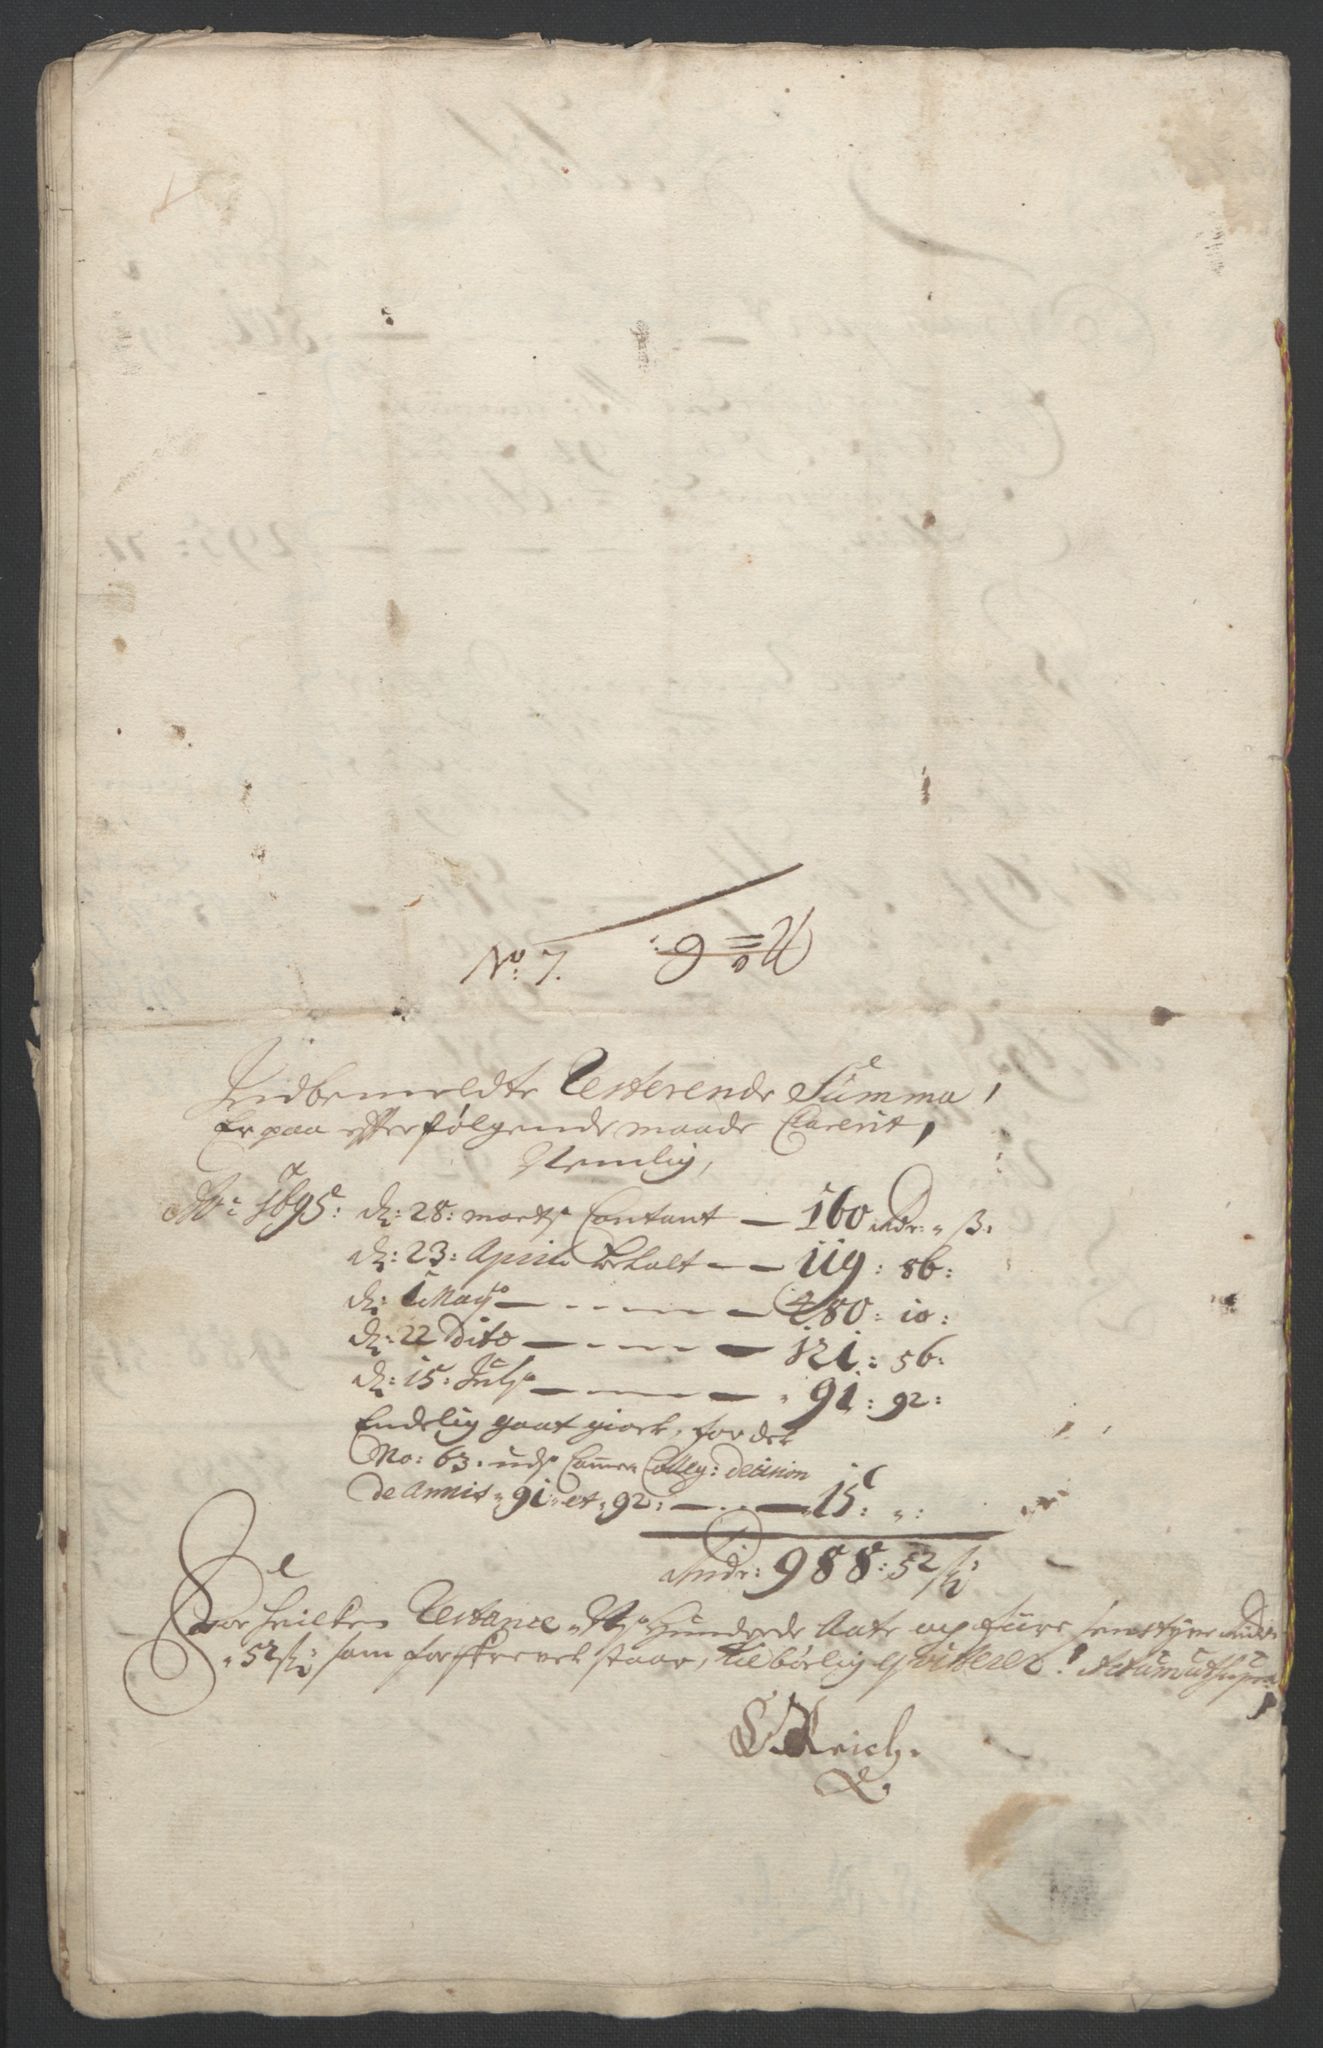 No: 7.
Indbemeldte Resterende Summa,
Er paa efterfølgende maade Clarerit,
Nemlig,
Ao: 1695: dn: 28: marts Contant — 160 rdr: „ ß:
dn: 23: April betalt — 119: 86:
dn: 1 May — 480: 10:
dn: 22 Dito — 121: 56:
dn: 15: July — „ 91: 92:
Endelig gaat giort, for det
No: 63. uds Camer Colleg: decision
de Annis „ 91 „ et „ 92: — 15: „:
Rdr: 988: 52 ß:
For hvilken Restance, Ny Hundrede Aate og fiire sinds tyve Rdr
„ 52 ß: som forskrevet staar, tilbørlig qvitteres! Actum ut supra
C Reich.